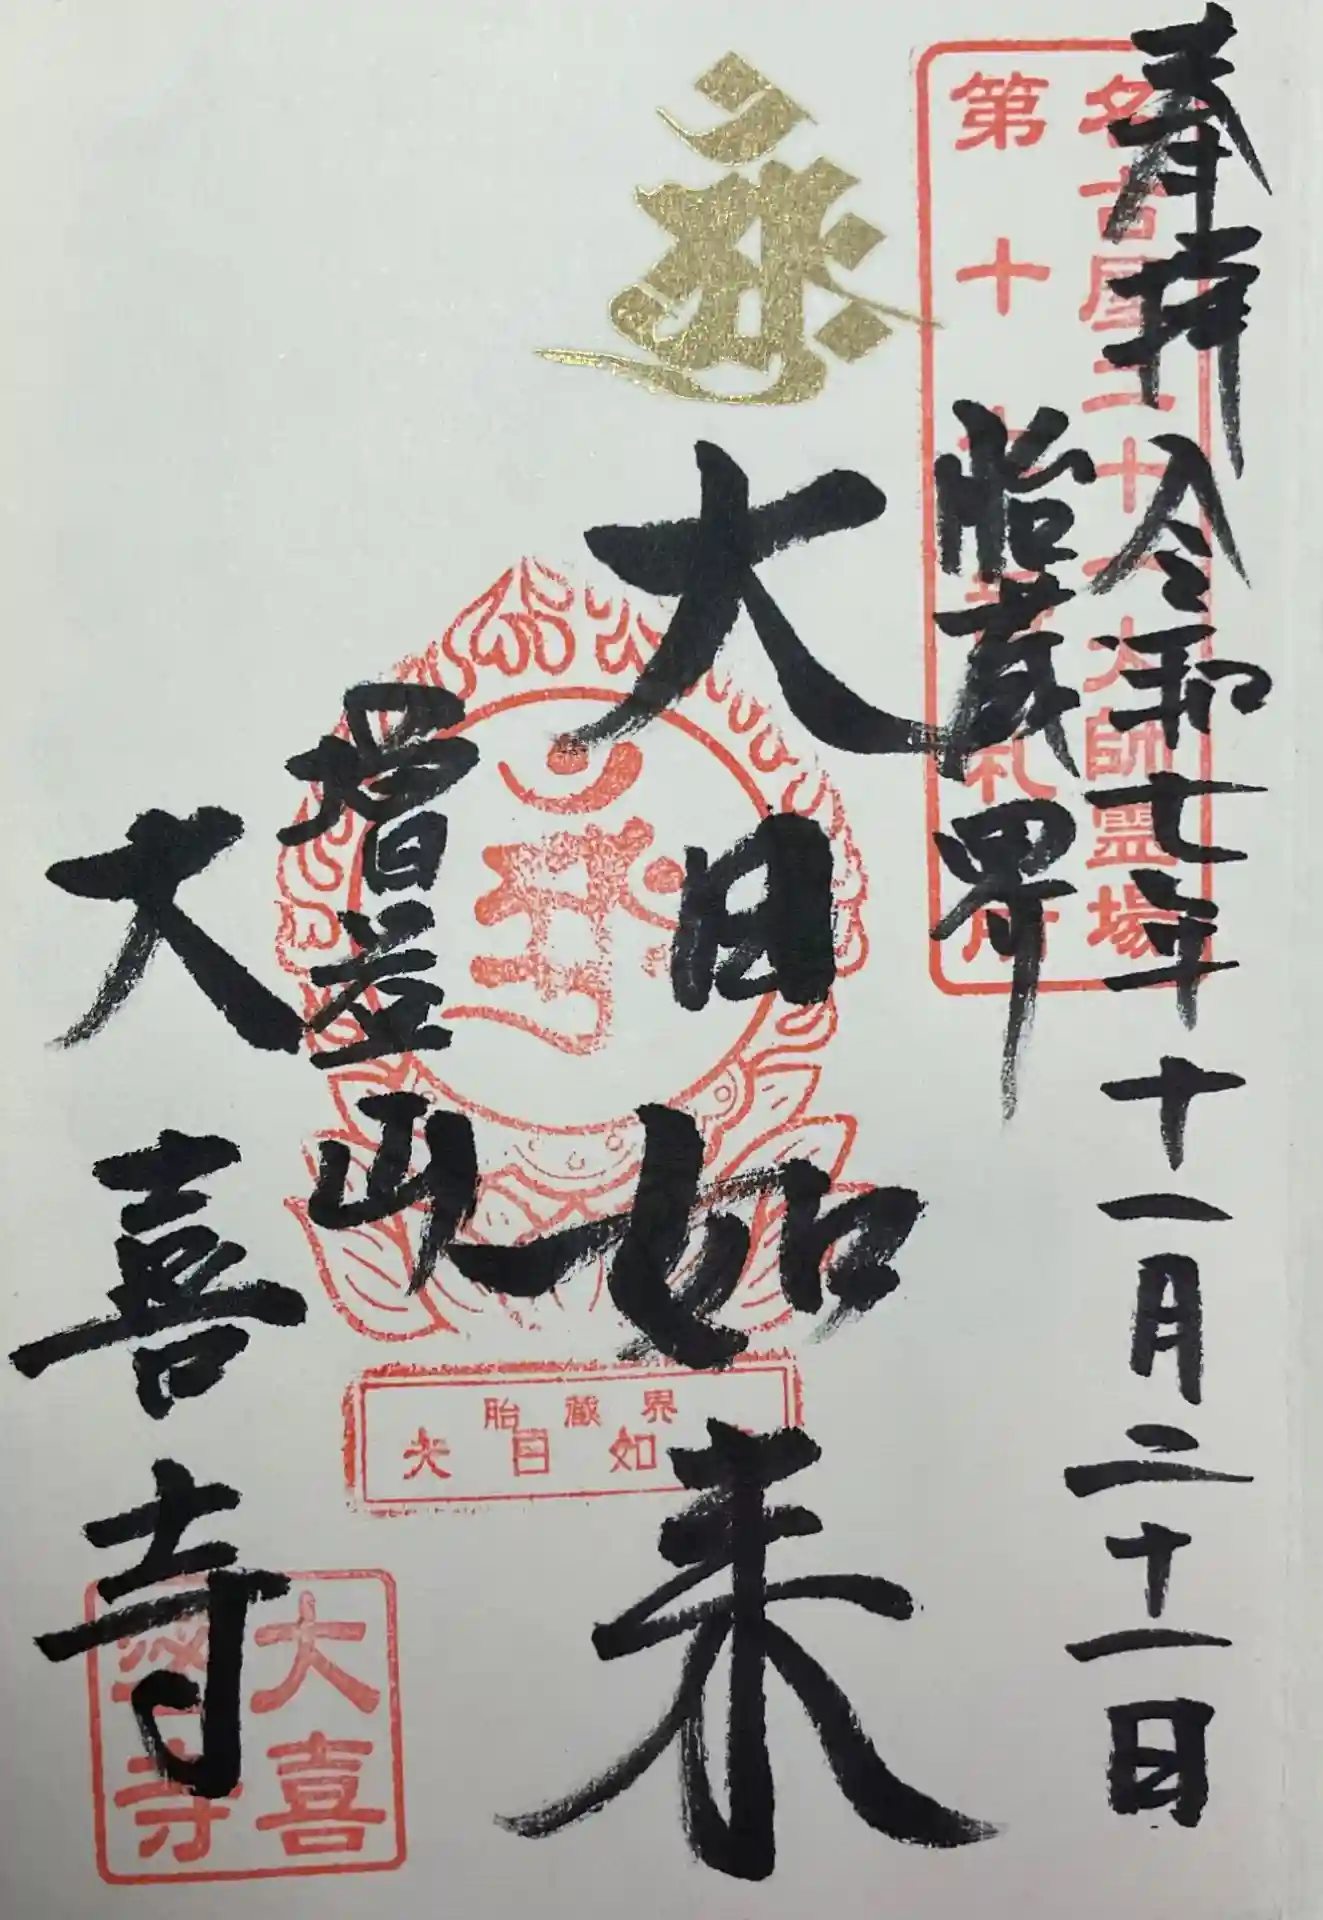 奉拝 令和七年十一月二十一日
名古屋二十一大師霊場
第十七番札所
胎蔵界
大日如来
胎蔵界
大日如来
増益山
大喜寺
大喜
寺